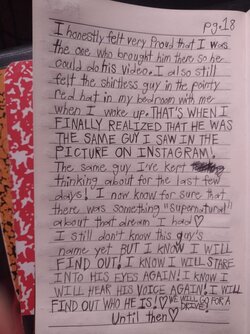 pg.18
I honestly felt very Proud that I was
the one who brought him there so he
could do his video. I also still
felt the shirtless guy in the pointy
red hat in my bedroom with me
when I woke up. THAT'S WHEN I
FINALLY REALIZED THAT HE WAS
THE SAME GUY I SAW IN THE
PICTURE ON INSTAGRAM!
The same guy I've kept
thinking about for the last few
days! I now know for sure that
there was something "supernatural"
about that dream I had♡
I still don't know this guy's
name yet BUT I KNOW I WILL
FIND OUT! I KNOW I WILL STARE
INTO HIS EYES AGAIN! I KNOW I
WILL HEAR HIS VOICE AGAIN! I WILL
FIND OUT WHO HE IS!♡ WE WILL GO FOR A
DRIVE!
Until then♡